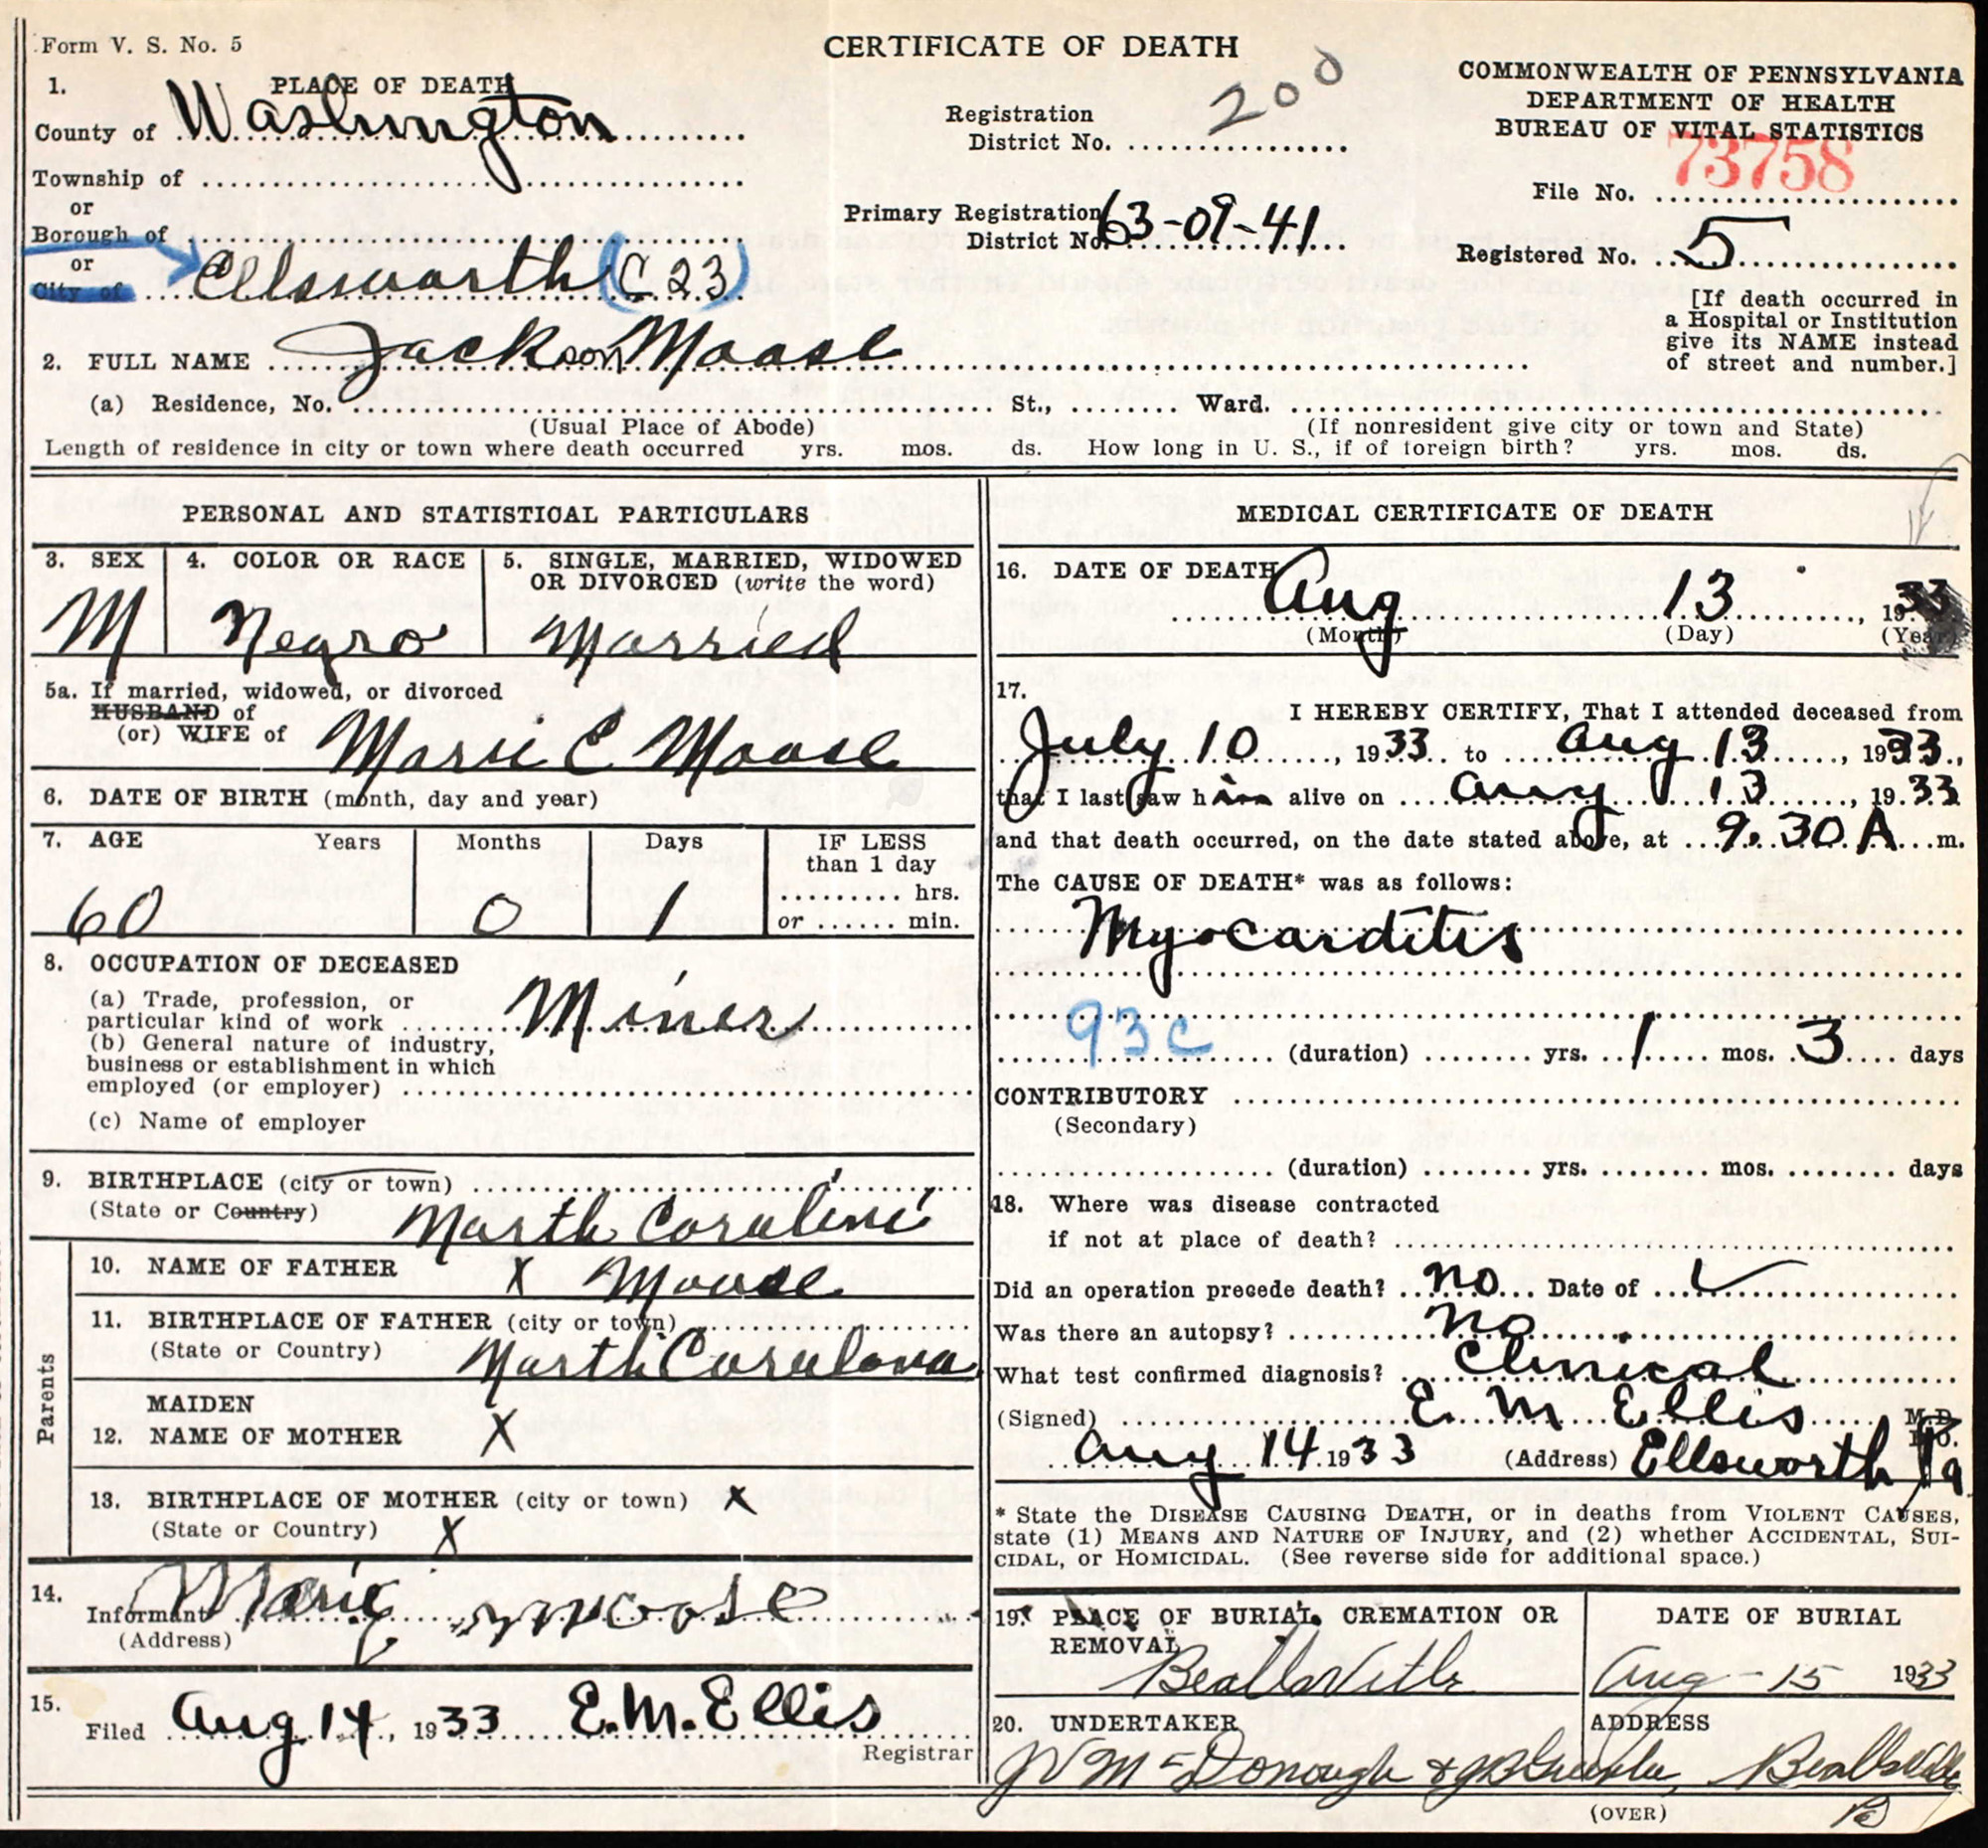 Form V. S. No. 5
CERTIFICATE OF DEATH
COMMONWEALTH OF PENNSYLVANIA
DEPARTMENT OF HEALTH
BUREAU OF VITAL STATISTICS
1. PLACE OF DEATH
County of Washington
Township of
or
Borough of
or
City of Ellsworth (C23)
Registration District No. 200
Primary Registration District No. 63-09-41
File No. 73758
Registered No. 5
[If death occurred in
a Hospital or Institution
give its NAME instead
of street and number.]
2. FULL NAME Jackson Moose
(a) Residence, No. St., Ward.
(Usual Place of Abode) (If nonresident give city or town and State)
Length of residence in city or town where death occurred yrs. mos. ds. How long in U. S., if of foreign birth? yrs. mos. ds.
PERSONAL AND STATISTICAL PARTICULARS
3. SEX
M
4. COLOR OR RACE
Negro
5. SINGLE, MARRIED, WIDOWED
OR DIVORCED (write the word)
Married
5a. If married, widowed, or divorced
HUSBAND of
(or) WIFE of Marie C Moose
6. DATE OF BIRTH (month, day and year)
7. AGE Years Months Days IF LESS
than 1 day
hrs.
or min.
60 0 1
8. OCCUPATION OF DECEASED
(a) Trade, profession, or
particular kind of work Miner
(b) General nature of industry,
business or establishment in which
employed (or employer)
(c) Name of employer
9. BIRTHPLACE (city or town)
(State or Country) North Carolini
10. NAME OF FATHER X Moose
11. BIRTHPLACE OF FATHER (city or town)
(State or Country) North Carolona
Parents
MAIDEN
12. NAME OF MOTHER X
13. BIRTHPLACE OF MOTHER (city or town) X
(State or Country) X
14.
Informant Marie Moose
(Address)
15.
Filed Aug 14, 1933 E. M. Ellis
Registrar
MEDICAL CERTIFICATE OF DEATH
16. DATE OF DEATH Aug 13, 1933
(Month) (Day) (Year)
17.
I HEREBY CERTIFY, That I attended deceased from
July 10, 1933 to Aug 13, 1933.,
that I last saw him alive on Aug 13, 1933
and that death occurred, on the date stated above, at 9.30 A m.
The CAUSE OF DEATH* was as follows:
Myocarditis
93c (duration) yrs. 1 mos. 3 days
CONTRIBUTORY
(Secondary)
(duration) yrs. mos. days
18. Where was disease contracted
if not at place of death?
Did an operation precede death? No Date of
Was there an autopsy? No
What test confirmed diagnosis? Clinical
(Signed) E. M Ellis M.D.
Aug 14. 1933 (Address) Ellsworth Pa
* State the DISEASE CAUSING DEATH, or in deaths from VIOLENT CAUSES,
state (1) MEANS AND NATURE OF INJURY, and (2) whether ACCIDENTAL, SUI-
CIDAL, or HOMICIDAL. (See reverse side for additional space.)
19. PLACE OF BURIAL, CREMATION OR
REMOVAL
Beallsville
DATE OF BURIAL
Aug - 15 1933
20. UNDERTAKER
ADDRESS
Donough & Beallsville
Pa
(OVER)